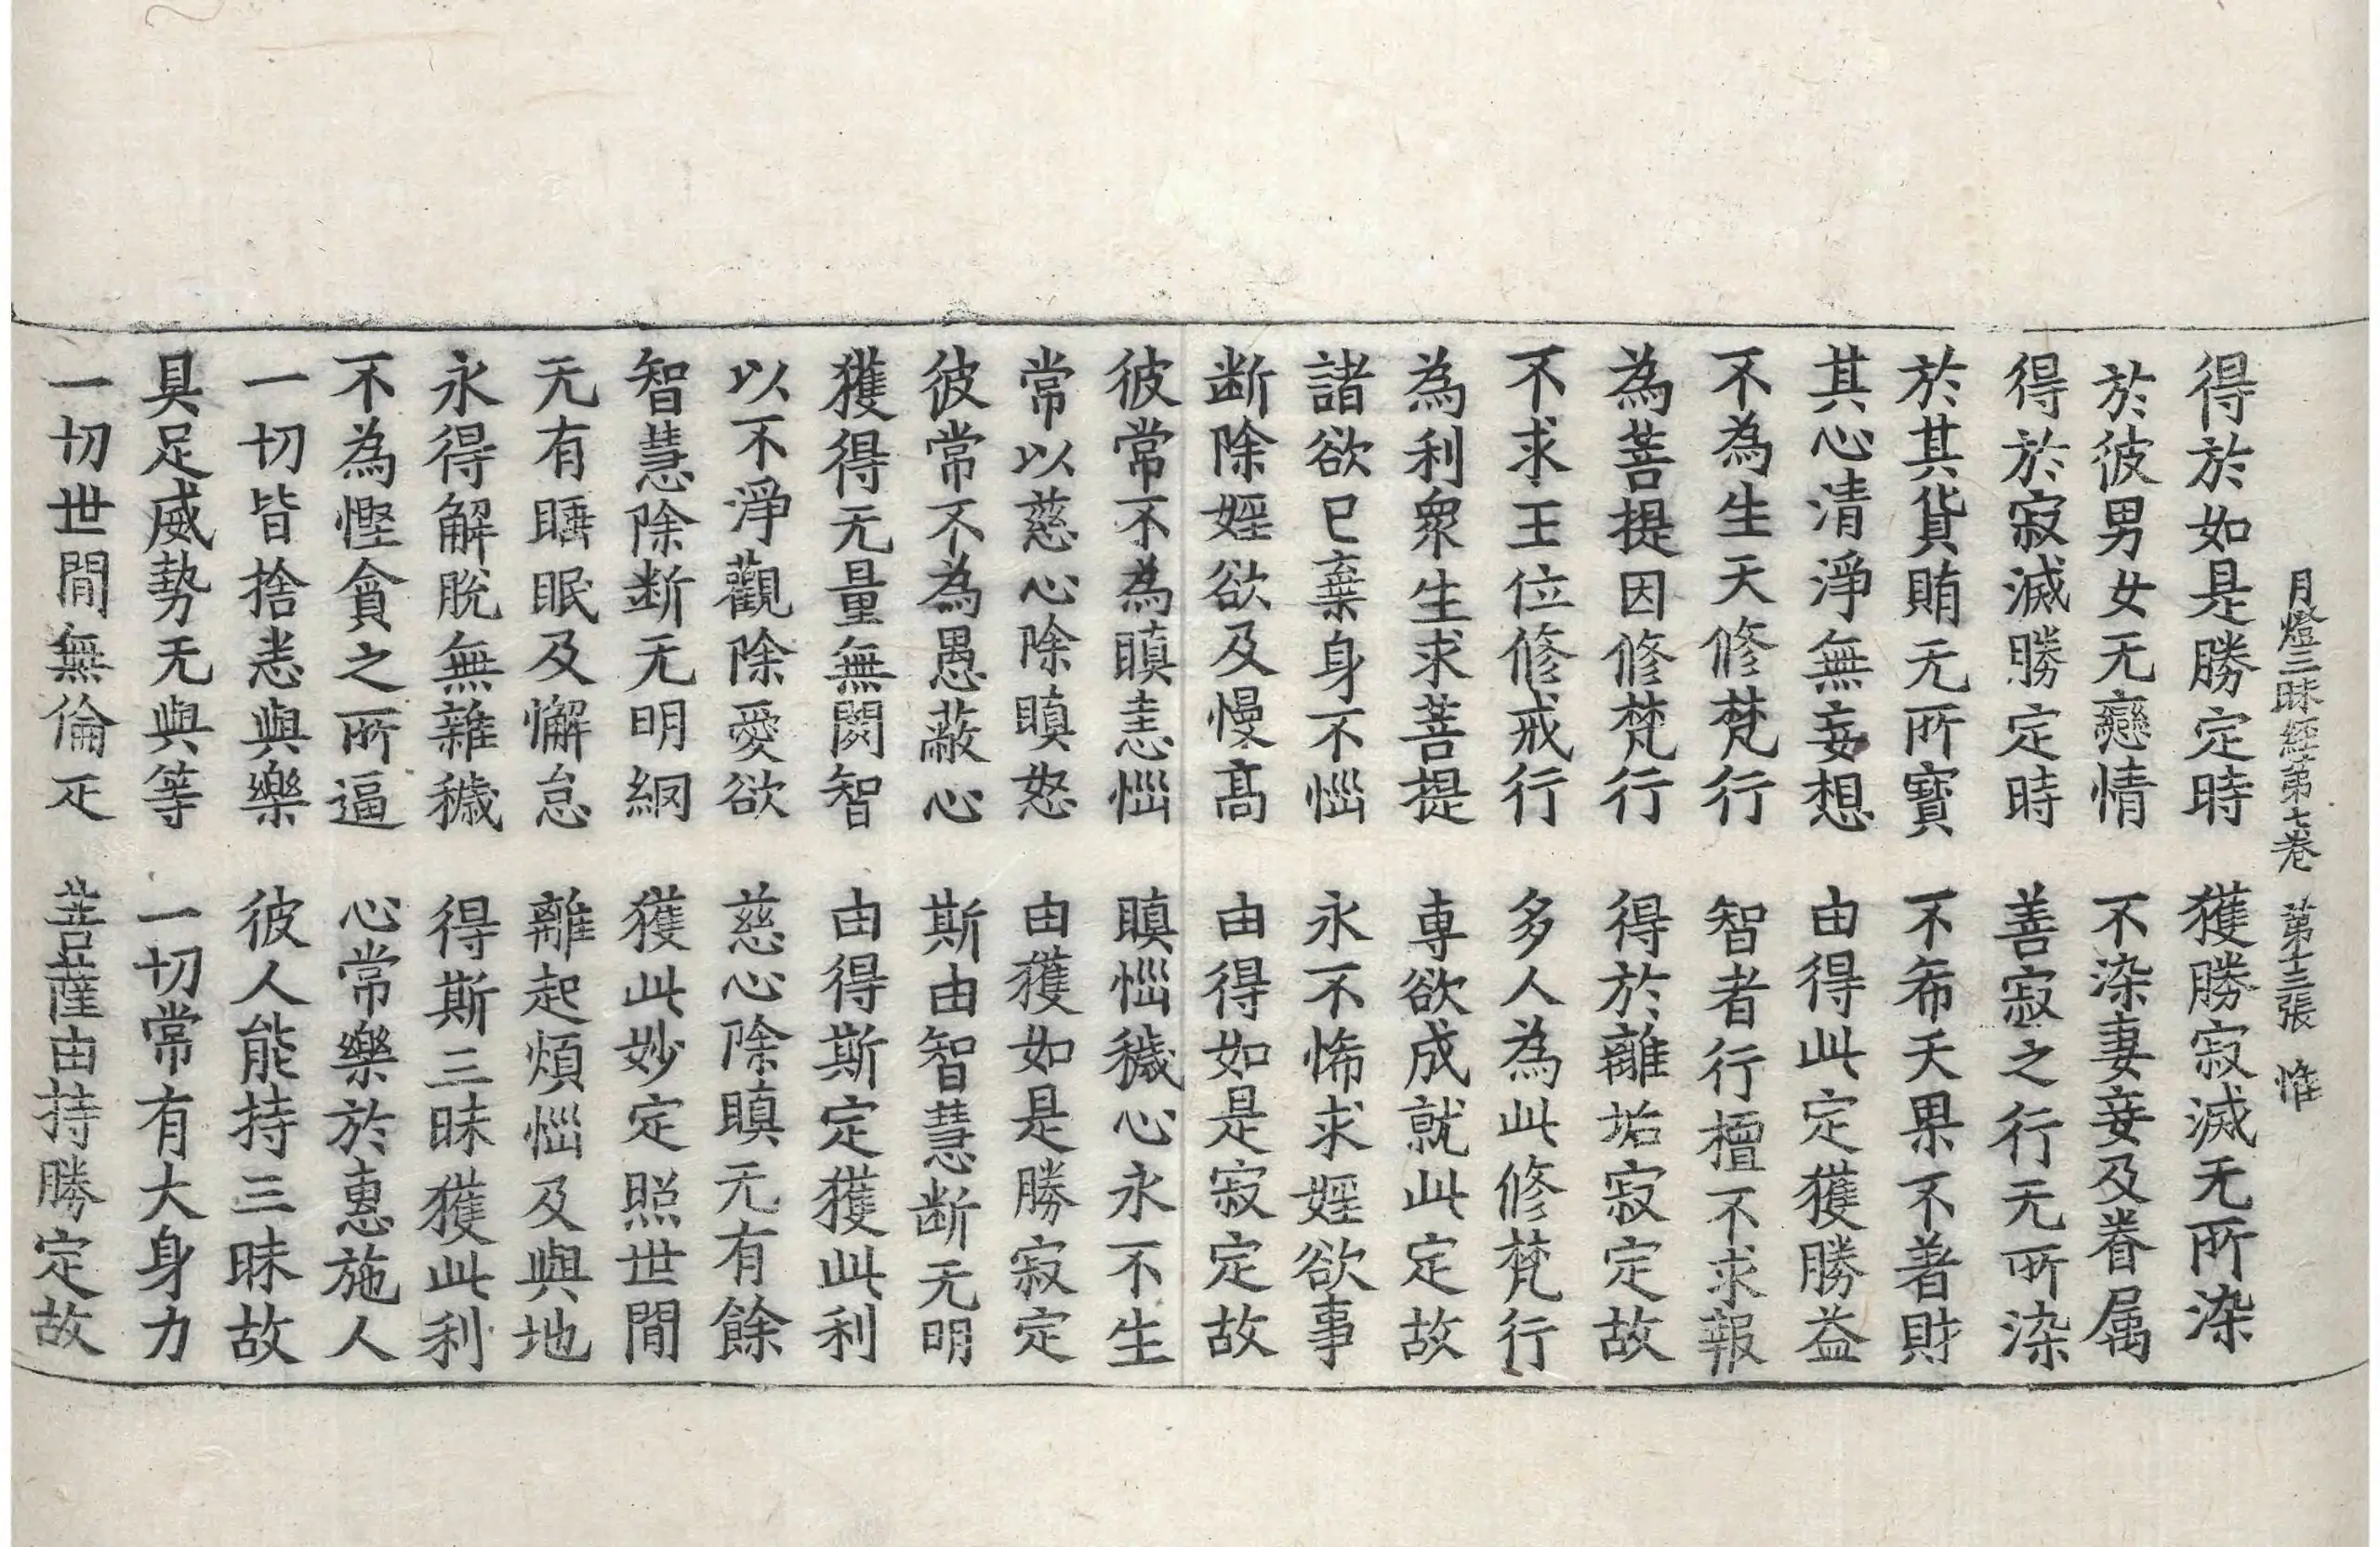 月燈三昧經第七卷 第十三張 惟
得於如是勝定時 獲勝寂滅无所染
於彼男女无戀情 不染妻妾及眷属
得於寂滅勝定時 善寂之行无所染
於其貨賄无所寶 不希天果不著財
其心清淨無妄想 由得此定獲勝益
不為生天修梵行 智者行檀不求報
為菩提因修梵行 得於離垢寂定故
不求王位修戒行 多人為此修梵行
為利衆生求菩提 専欲成就此定故
諸欲已棄身不惱 永不悕求婬欲事
断除婬欲及慢髙 由得如是寂定故
彼常不為瞋恚惱 瞋惱穢心永不生
常以慈心除瞋怒 由獲如是勝寂定
彼常不為愚蔽心 斯由智慧断无明
獲得无量無閡智 由得斯定獲此利
以不淨觀除愛欲 慈心除瞋无有餘
智慧除断无明網 獲此妙定照世間
无有睡眠及懈怠 離起煩惱及與地
永得解脫無雜穢 得斯三昧獲此利
不為慳貪之所逼 心常樂於惠施人
一切皆捨恚與樂 彼人能持三昧故
具足威勢无與等 一切常有大身力
一切世間無倫疋 菩薩由持勝定故